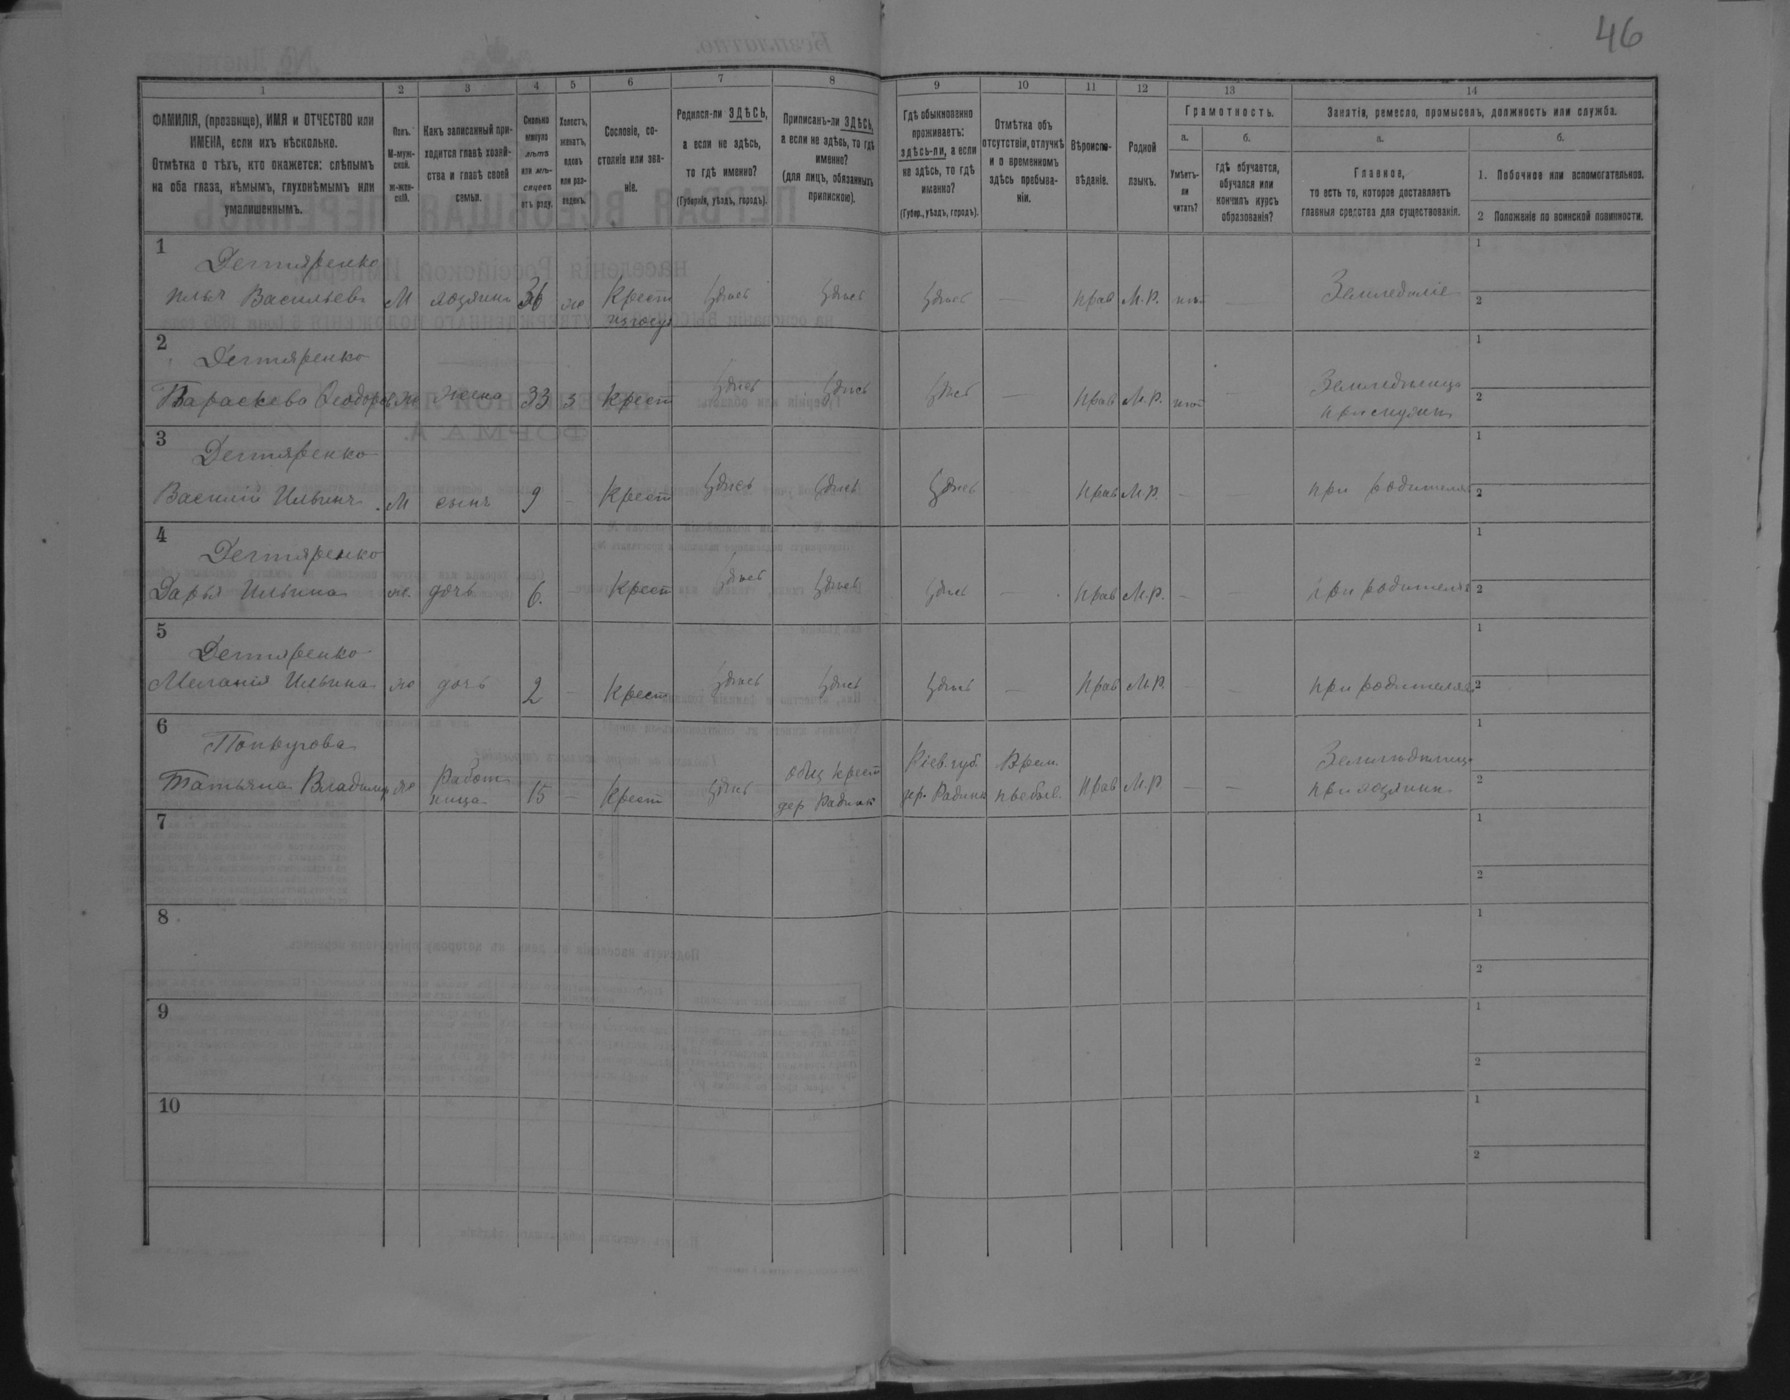 46
1 2 3 4 5 6 7 8 9 10 11 12 13 14
ФАМИЛІЯ, (прозвище), ИМЯ и ОТЧЕСТВО или
ИМЕНА, если ихъ нѣсколько.
Отмѣтка о тѣхъ, кто окажется: слѣпымъ
на оба глаза, нѣмымъ, глухонѣмымъ или
умалишеннымъ.
Полъ.
М-муж-
ской.
ж-жен-
скій.
Какъ записанный при-
ходится главѣ хозяй-
ства и главѣ своей
семьи.
Сколько
минуло
лѣтъ
или мѣ-
сяцевъ
отъ роду.
Холостъ,
женатъ,
вдовъ
или раз-
веденъ.
Сословіе, со-
стояніе или зва-
ніе.
Родился-ли ЗДѢСЬ,
а если не здѣсь,
то гдѣ именно?
(Губернія, уѣздъ, городъ).
Приписанъ-ли ЗДѢСЬ,
а если не здѣсь, то гдѣ
именно?
(для лицъ, обязанныхъ
припискою).
Гдѣ обыкновенно
проживаетъ:
здѣсь-ли, а если
не здѣсь, то гдѣ
именно?
(Губер., уѣздъ, городъ).
Отмѣтка объ
отсутствіи, отлучкѣ
и о временномъ
здѣсь пребыва-
ніи.
Вѣроиспо-
вѣданіе.
Родной
языкъ.
Грамотность.
а. б.
Умѣетъ-
ли
читать?
гдѣ обучается,
обучался или
кончилъ курсъ
образованія?
Занятія, ремесло, промыселъ, должность или служба.
а. б.
Главное,
то есть то, которое доставляетъ
главныя средства для существованія.
1. Побочное или вспомогательное.
2 Положеніе по воинской повинности.
1 Дегтяренко
Илья Васильевъ М хозяинъ 36 же Крест здѣсь здѣсь здѣсь — прав М.Р. нѣт — Земледѣліе 1 2
2 Дегтяренко
Параскева Ѳеодоров же жена 33 з Крест здѣсь здѣсь здѣсь — прав М.Р. нѣт — Земледѣлица
при мужѣ 1 2
3 Дегтяренко
Василій Ильинъ М сынъ 9 — Крест здѣсь здѣсь здѣсь — прав М.Р. — при родителях 1 2
4 Дегтяренко
Дарья Ильина же дочь 6. — Крест здѣсь здѣсь здѣсь — прав М.Р. — — при родителях 1 2
5 Дегтяренко
Меланія Ильина же дочь 2 — Крест здѣсь здѣсь здѣсь — прав М.Р. — — при родителях 1 2
6
Татьяна Владимір же Работ
ница 15 — Крест здѣсь общ крест
дер Радинк Кіев. губ.
дер. Радинк Врем.
пребыв. прав М.Р. — — Земледѣлица
при хозяинѣ 1 2
7 1 2
8 1 2
9 1 2
10 1 2